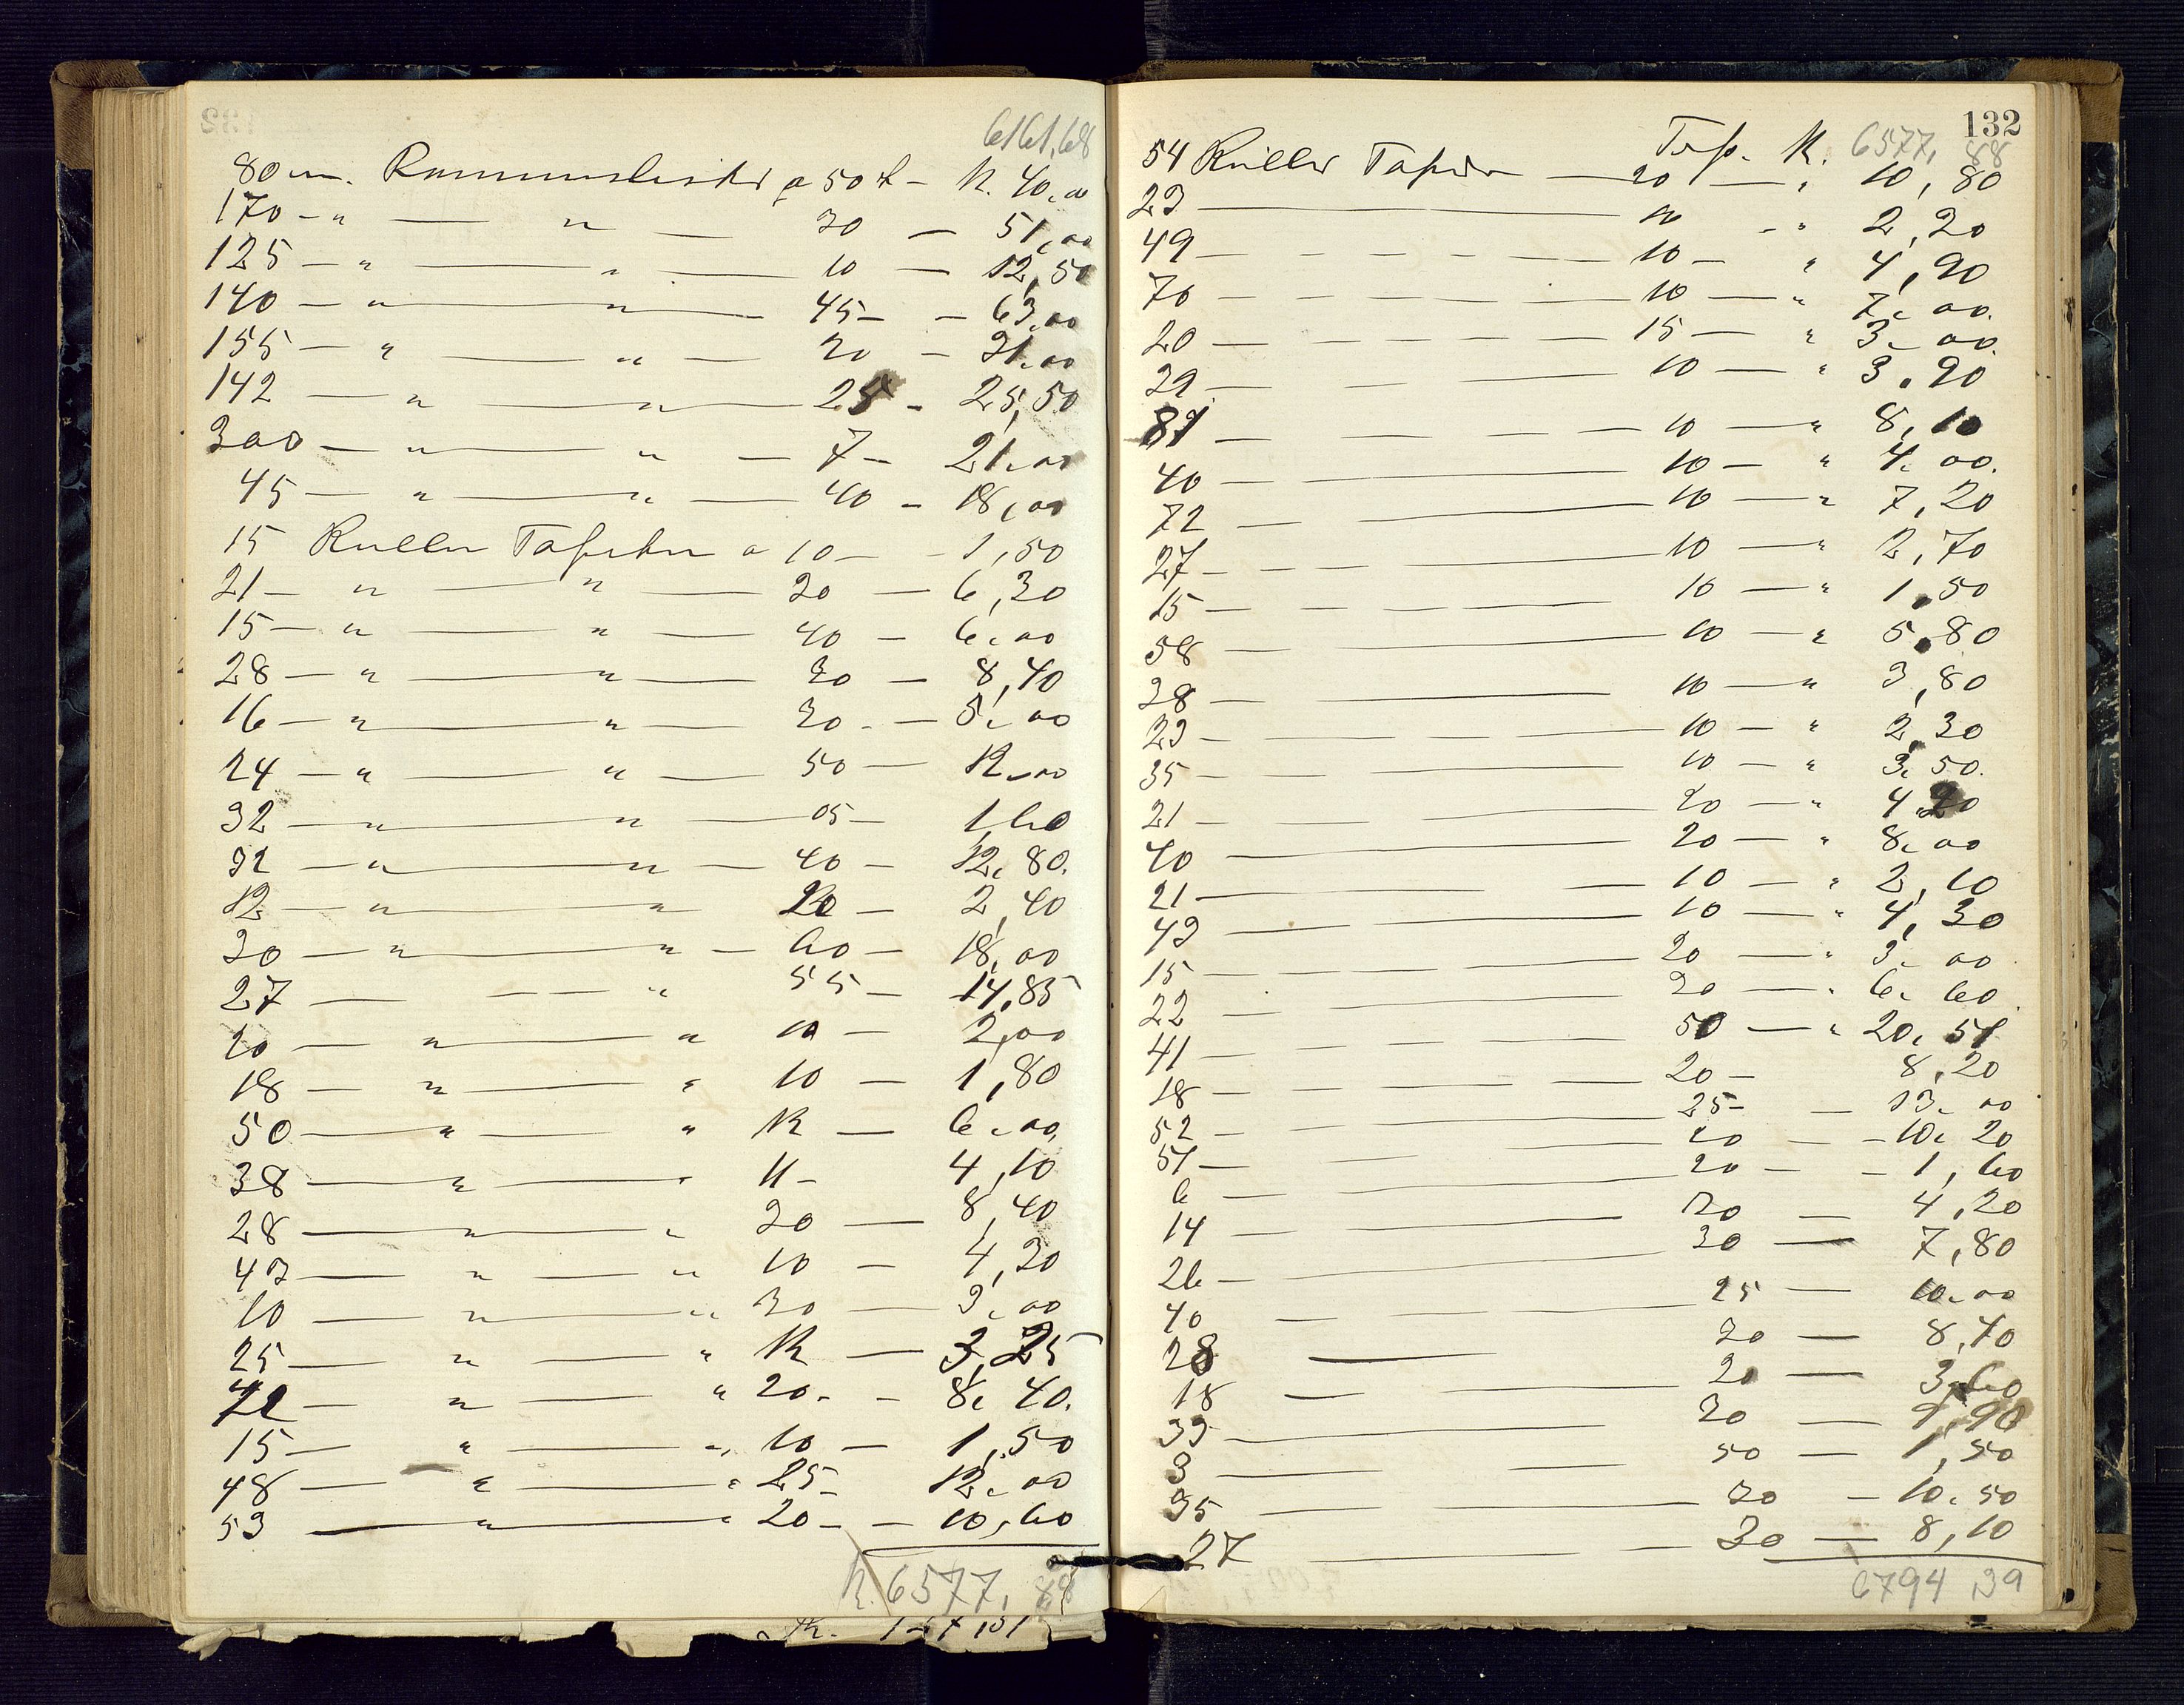 6161,68
80 m. Rammelister a 50 k - K. 40,00
170 - " — " — 30 — 51,00
125 - " — " — 10 — 12,50
140 - " — " — 45 - - 63,00
155 - " — " — 20 - 31,00
142 — " — " — 25 - 25,50
300 — " — " — 7 - 21,00
45 — " — " — 40 - 18,00
15 Ruller Tapeter a 10 - - 1,50
21 - " — " — 30 — 6,30
15 - " — " — 40 - 6,00
28 - " — " — 30 - 8,40
16 - " — " — 30 - - 5,00
24 - " — " — 50 — 12,00
32 — " — " — 05 - 1,60
32 — " — " — 40 - 12,80.
12 — " — " 20 - 2,40
30 — " — " - 60 - 18,00
27 — — " 55 - 14,85
20 — " — " 10 - 2,00
18 — " — " 10 — 1,80
50 — " — " 12 — 6,00
38 — " — " 11 - 4,10
28 — " — " 30 — 8,40
43 — " — " 10 - 4,30
10 — " — " 30 — 3,00
25 — " — " 12 — 3,25
42 — " — " 20 - - 8,40.
15 — " — " 10 — 1,50
48 — " — " 25 - 12,00
53 — " — " 20 - - 10,60
K. 6577,88
132
6577,88
54 Ruller Tapeter — 20 — " 10,80
23 — 10 - " 2,20
49 — 10 - " 4,90
70 — 10 — " 7,00.
20 — 15 — " 3,00.
39 — 10 — " 3.90
81 — 10 — " 8,10
40 — 10 — " 4,00.
72 — 10 — " 7,20
27 — 10 — " 2,70
15 — 10 — " 1,50
58 — 10 — " 5,80
38 — 10 — " 3,80
23 — 10 — " 2,30
35 — 10 — " 3,50.
21 — 20 — " 4,20
40 — 20 — " 8,00
21 — 10 — " 2,10
43 — 10 — " 4,30
15 — 20 — " 3,00
22 — 30 — " 6,60
41 — 50 — " 20,51
18 — 20 - 8,20
52 — 25 - — 13,00
51 — 20 — - 10,20
6 — 20 — - 1,60
14 — 30 — 4,20
26 — 30 — 7,80
40 — 25 — 10,00
28 — 30 — 8,40
18 — 20 — 3,60
33 — 30 — 9,90
3 — 50 — 1,50
35 — 30 - 10,50
27 — 30 — 8,10
6794,39